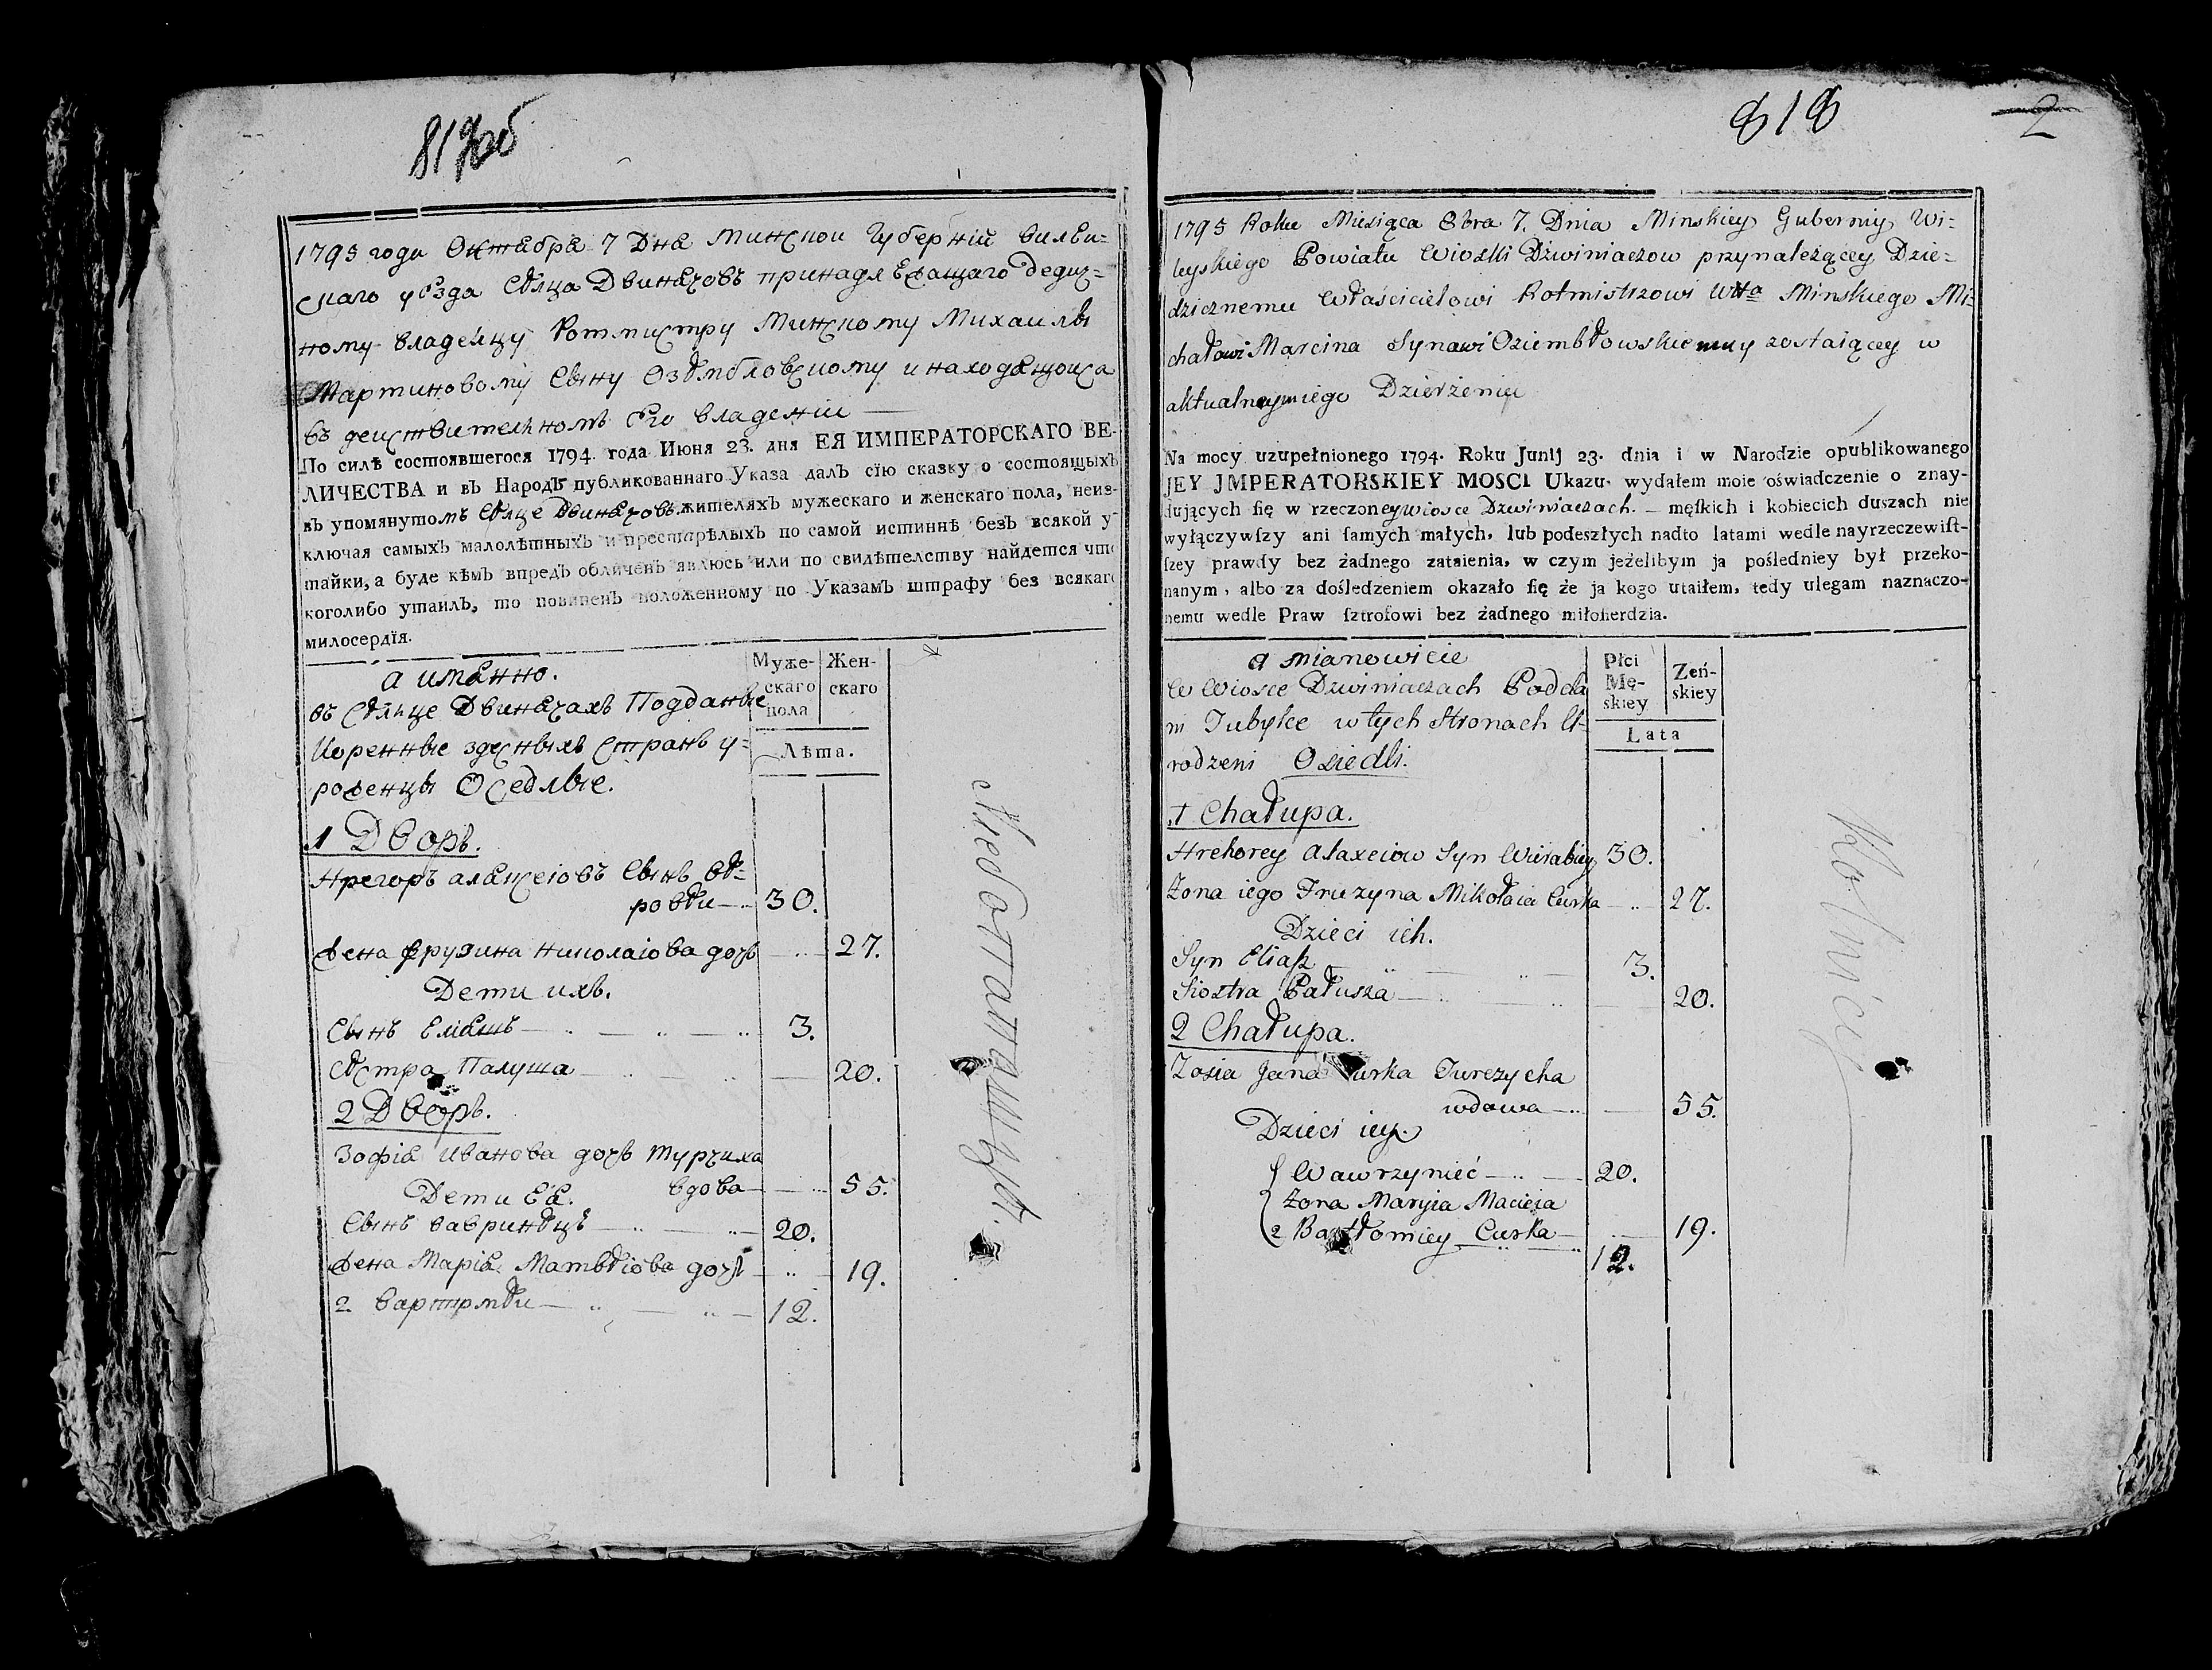 817об
1795 года Октября 7 Дня Минской Губерніи Вилей-
скаго уезда Селца Двинячовъ принадлежащаго Дедич-
ному владельцу Ротмистру Минскому Михаилы
Мартиновому Сыну Озембловскому и находящоися
въ действителномъ Его владеніи —
По силѣ состоявшегося 1794 года Июня 23. дня ЕЯ ИМПЕРАТОРСКАГО ВЕ-
ЛИЧЕСТВА и въ Народъ публикованнаго Указа далъ сїю сказку о состоящыхъ
въ упомянутомъ Селце Двинячовъ жителяхъ мужескаго и женскаго пола, неиз-
ключая самыхъ малолѣтныхъ и престарѣлыхъ по самой истиннѣ безъ всякой у-
тайки, а буде кѣмъ впредь обличенъ явлюсь или по свидѣтелству найдется что
коголибо утаилъ, то повиненъ положенному по Указамъ штрафу без всякаго
милосердїя.
а имянно.
Муже-
скаго
пола
Жен-
скаго
Лѣта.
въ Селце Двинячахъ Подданые
Коренные здесныхъ странъ у-
роженцы Оседлые.
1 Дворъ.
Hрегоръ алексеіовъ Сынъ
30.
Жена Фрузина николаіова дочь — 27.
Дети ихъ.
Сынъ Еліяшъ — 3.
Сестра Палуша — 20.
2 Дворъ.
Зофія Иванова дочь Турчиха
вдова — 55.
Дети Ея.
Сынъ Вавринецъ — 20.
Жена Марія Матвеіова дочь — 19.
2 — 12.
818
2
1795 Roku Miesiąca 8bra 7. Dnia Minskiey Guberniy Wi-
leyskiego Powiatu Wioski Dzwiniaczow przynależącey Dzie-
dzicznemu Właścicielowi Rotmistrzowi Wttа Minskiego Mi-
chałowi Marcina Synowi Oziembłowskiemuy zostaiącey w
aktualneymiego Dzierżeniu
Na mocy uzupełnionego 1794. Roku Junij 23. dnia i w Narodzie opublikowanego
JEY JMPERATORSKIEY MOSCI Ukazu, wydałem moie oświadczenie o znay-
dujących ſię w rzeczoney wiosce Dzwiniaczach. — męſkich i kobiecich duszach nie
wyłączywſzy ani ſamych małych, lub podeszłych nadto latami wedle nayrzeczewiſt-
ſzey prawdy bez żadnego zataienia, w czym jeżelibym ja pośledniey był przeko-
nanym, albo za dośledzeniem okazało ſię że ja kogo utaiłem, tedy ulegam naznaczo-
nemu wedle Praw ſztrofowi bez żadnego miłoſierdzia.
a mianowicie
Płci
Mę-
skiey
Zeń-
skiey
Lata
W Wiosce Dzwiniaczach Podda
ni Tubylce w tych Stronach U-
rodzeni Osiedli.
1 Chałupa.
Hrehorey Alaxeiow Syn Wierabiey 30.
Zona iego Fruzyna Mikołaia Curka — 27.
Dzieci ich.
Syn Eliaſz — 3.
Siostra Pałusza — 20.
2 Chałupa.
Zosia Jana Curka Turczycha
wdowa — 55.
Dzieci iey.
Wawrzynieć — 20.
Zona Maryia Macieia
2 Bartłomiey Curka — 19.
12.